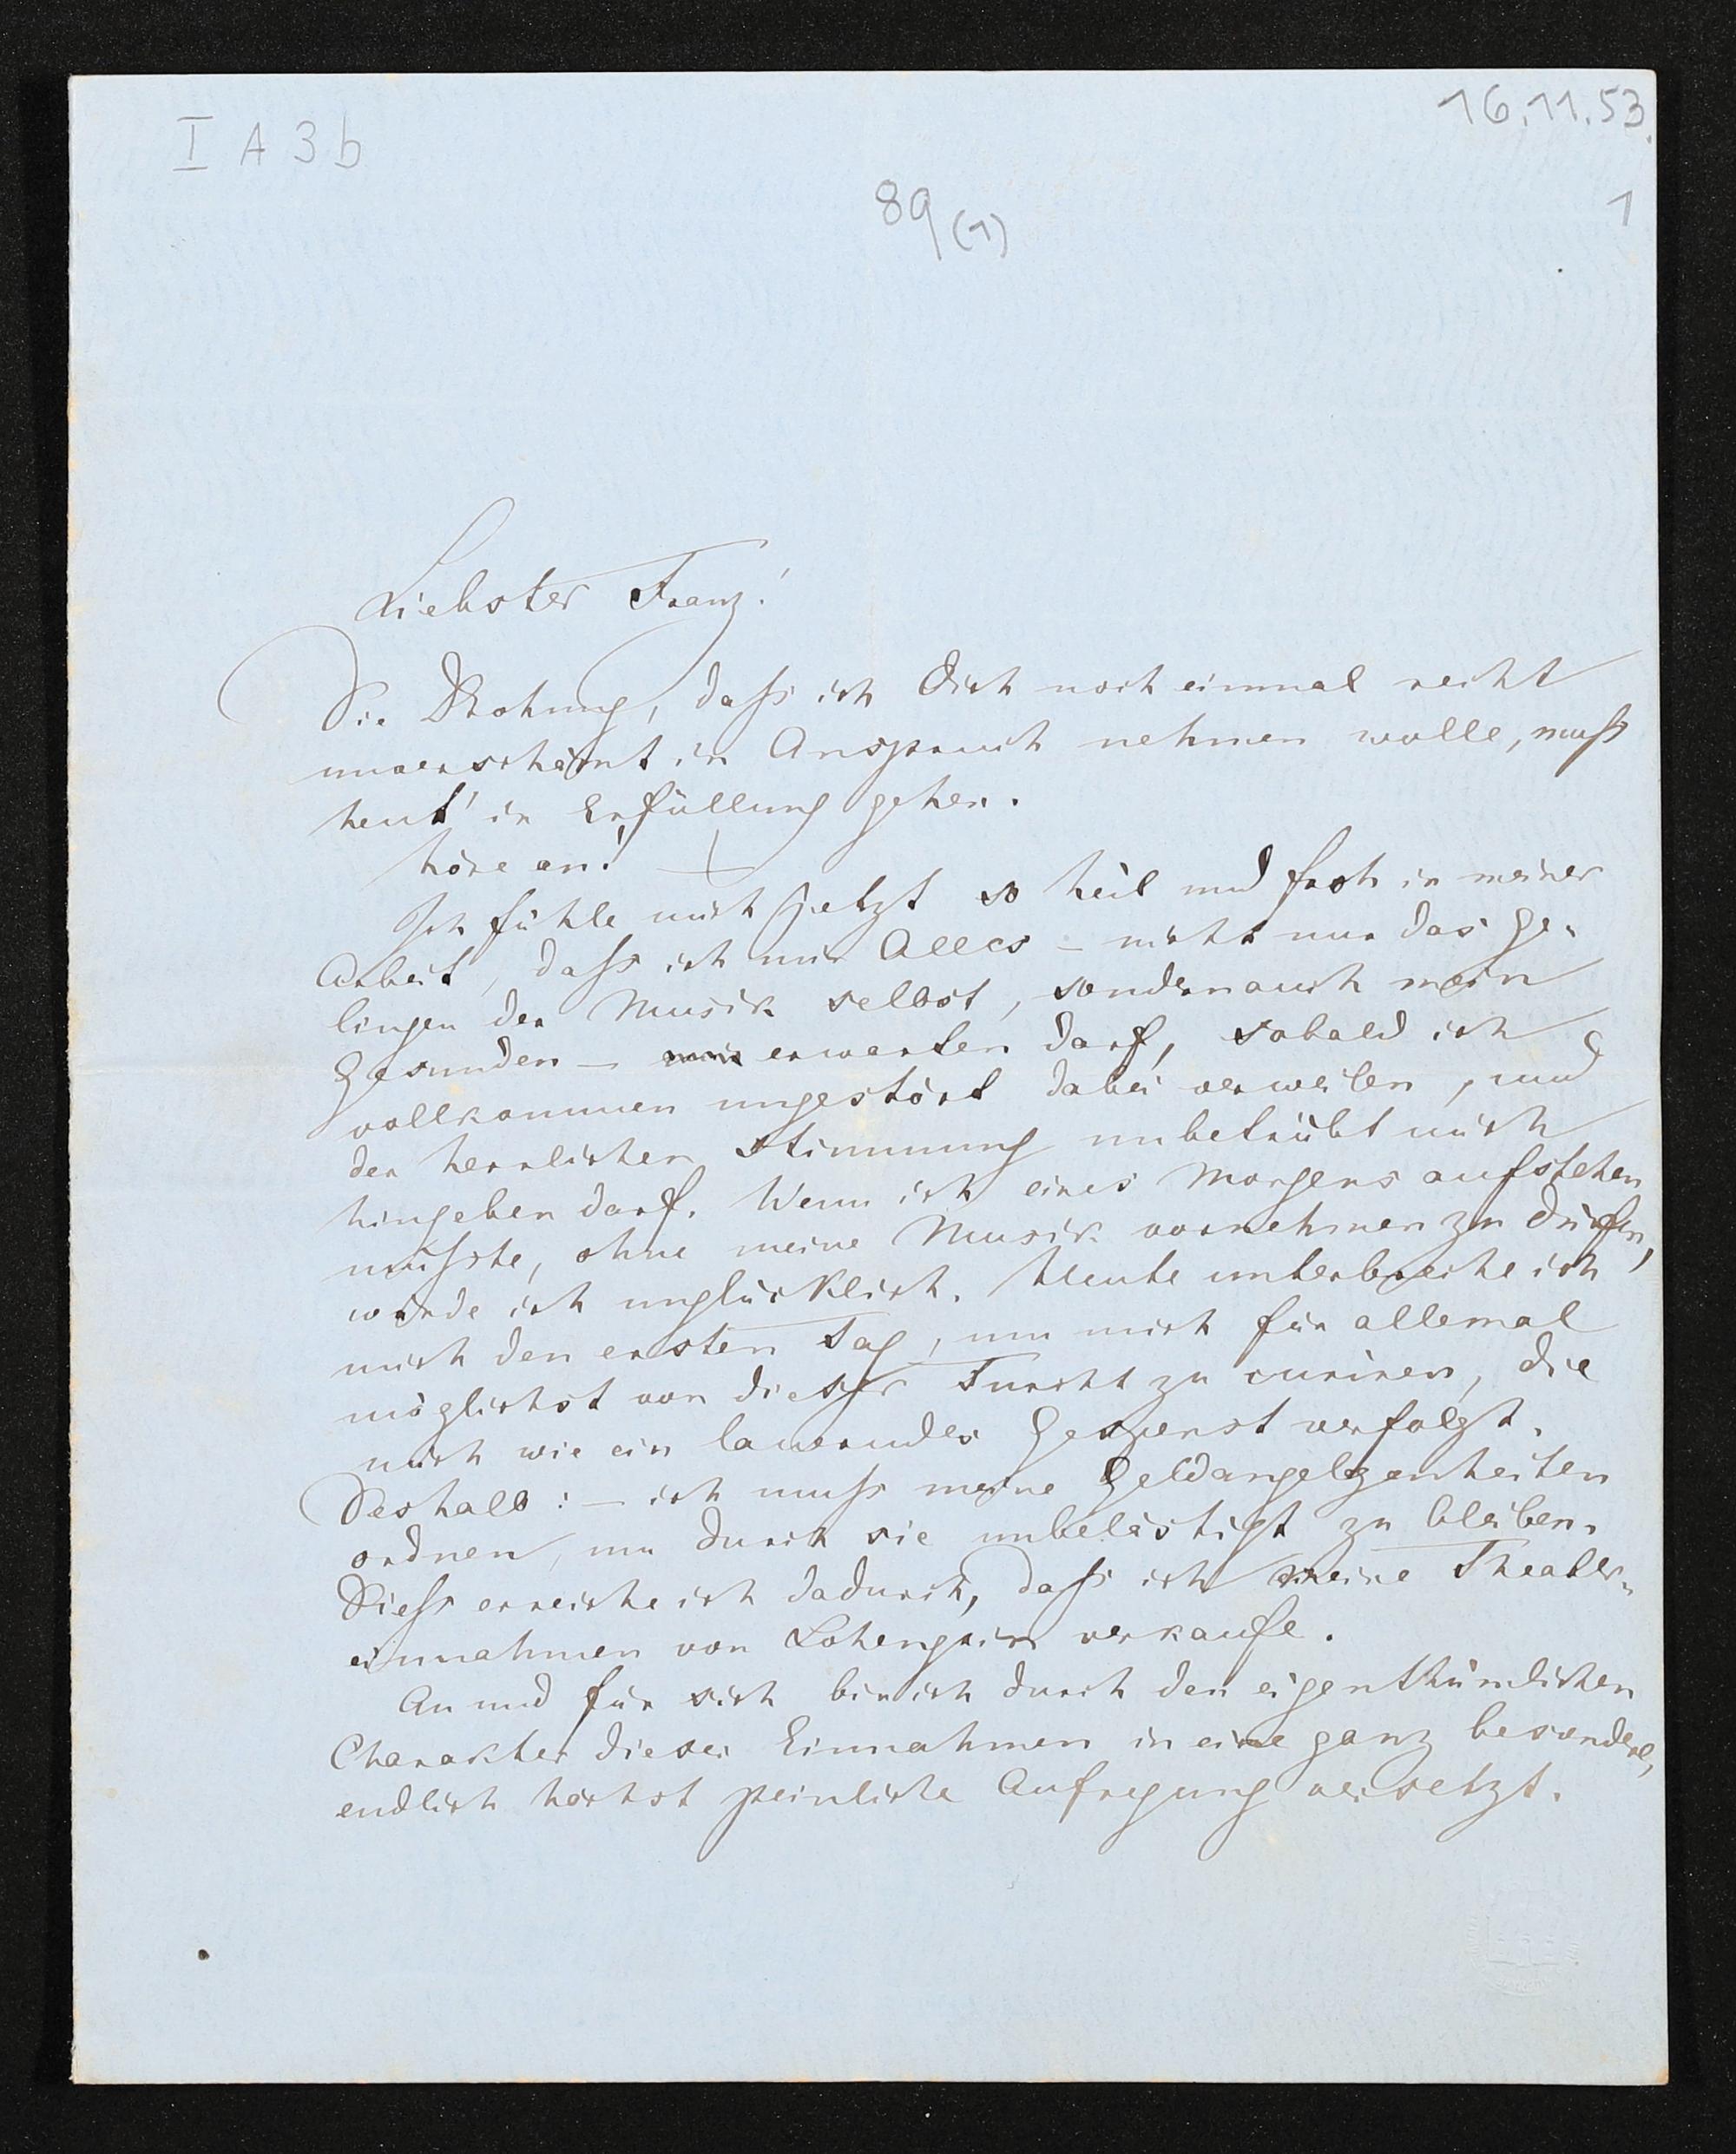 I A 3 b
16.11.53.
89 (1)
1
Liebster Franz!
Die Drohung, daß ich Dich noch einmal recht
unverschämt in Anspruch nehmen wolle, muß
heut' in Erfüllung gehen.
höre an! —
Ich fühle mich jetzt so heil und froh in meiner
Arbeit, daß ich mir Alles – nicht nur das Ge-
lingen der Musik selbst, sondern auch mein
Gesunden – erwarten darf, sobald ich
vollkommen ungestört dabei verweilen, und
der herrlichen Stimmung unbetrübt mich
hingeben darf. Wenn ich eines Morgens aufstehen
müßte, ohne meine Musik vornehmen zu dürfen,
würde ich unglücklich. Heute unterbreche ich
mich den ersten Tag, um mich für allemal
möglichst von dieser Furcht zu curiren, die
mich wie ein lauerndes Gespenst verfolgt.
Deshalb: – ich muß meine Geldangelegenheiten
ordnen, um durch sie unbelästigt zu bleiben.
Dieß erreiche ich dadurch, daß ich meine Theater-
einnahmen von Lohengrin verkaufe.
An und für sich bin ich durch den eigenthümlichen
Charakter dieser Einnahmen in eine ganz besondere,
endlich höchst peinliche Aufregung versetzt.